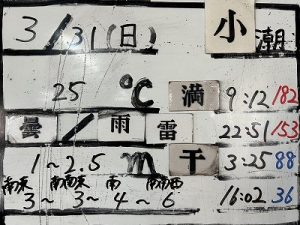 3/31(日) 小潮
25 ℃ 満 9:12 182
曇/雨雷 22:51 153
1~2.5 m 干 3:25 88
南東 南南東 南 南南西
3~ 3~4~6 16:02 36